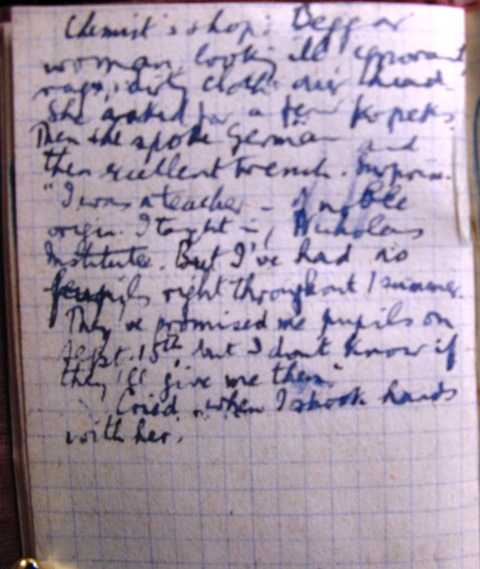 Chemist's shop: Beggar
woman, looking ill, ignorant,
rags, dirty cloth over head.
She asked for a few kopeks.
Then she spoke German and
then excellent French. Surprise.
"I was a teacher - of noble
origin. I taught in Nicholas
Institute. But I've had no
pupils right throughout / summer.
They've promised me pupils on
Sept. 15th, but I don't know if
they'll give me them."
Cried when I shook hands
with her.